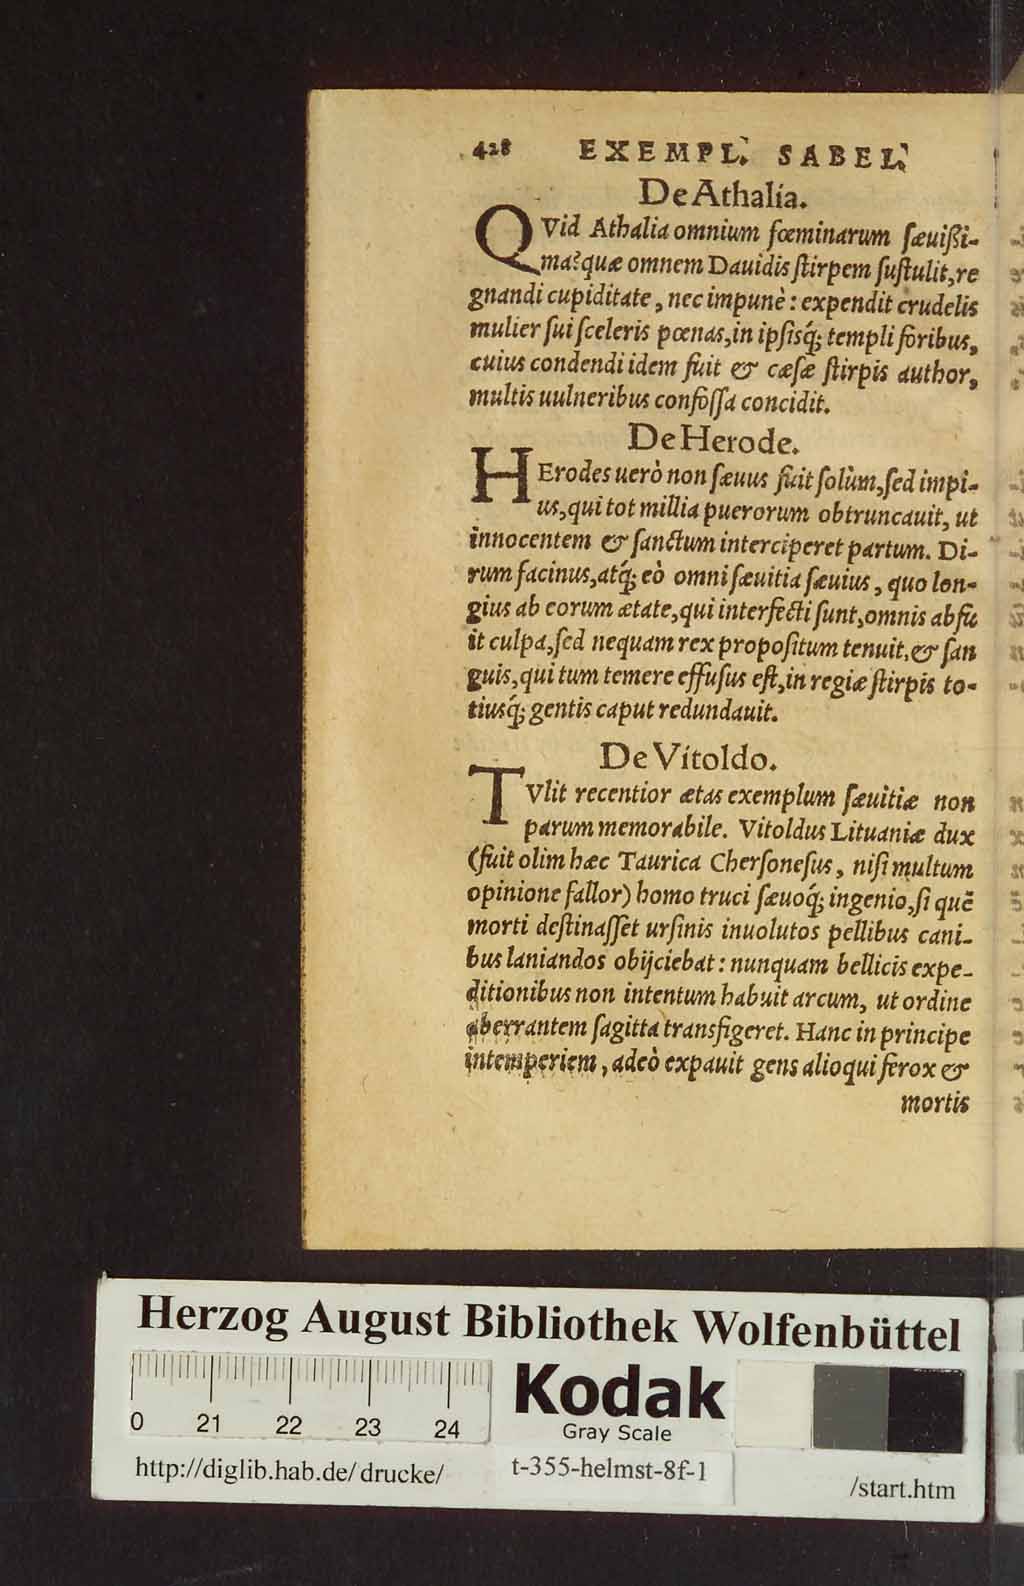 428 EXEMPL. SABEL.
De Athalia.
QVid Athalia omnium fœminarum ſæuißi-
ma? quæ omnem Dauidis ſtirpem ſuſtulit, re
gnandi cupiditate, nec impunè: expendit crudelis
mulier ſui ſceleris pœnas, in ipſisq́; templi foribus,
cuius condendi idem fuit & cæſæ ſtirpis author,
multis uulneribus confoſſa concidit.
De Herode.
HErodes uerò non ſæuus fuit ſolùm, ſed impi-
us, qui tot millia puerorum obtruncauit, ut
innocentem & ſanctum interciperet partum. Di-
rum facinus, atq́; eò omni ſæuitia ſæuius, quo lon-
gius ab eorum ætate, qui interfecti ſunt, omnis abfu
it culpa, ſed nequam rex propoſitum tenuit, & ſan
guis, qui tum temere effuſus eſt, in regiæ ſtirpis to-
tiusq́; gentis caput redundauit.
De Vitoldo.
TVlit recentior ætas exemplum ſæuitiæ non
parum memorabile. Vitoldus Lituaniæ dux
(fuit olim hæc Taurica Cherſoneſus, niſi multum
opinione fallor) homo truci ſæuoq́; ingenio, ſi quē
morti deſtinaſſet urſinis inuolutos pellibus cani-
bus laniandos obijciebat: nunquam bellicis expe-
ditionibus non intentum habuit arcum, ut ordine
aberrantem ſagitta transfigeret. Hanc in principe
intemperiem, adeò expauit gens alioqui ferox &
mortis
Herzog August Bibliothek Wolfenbüttel
0 21 22 23 24
Kodak
Gray Scale
http://diglib.hab.de/drucke/ t-355-helmst-8f-1 /start.htm